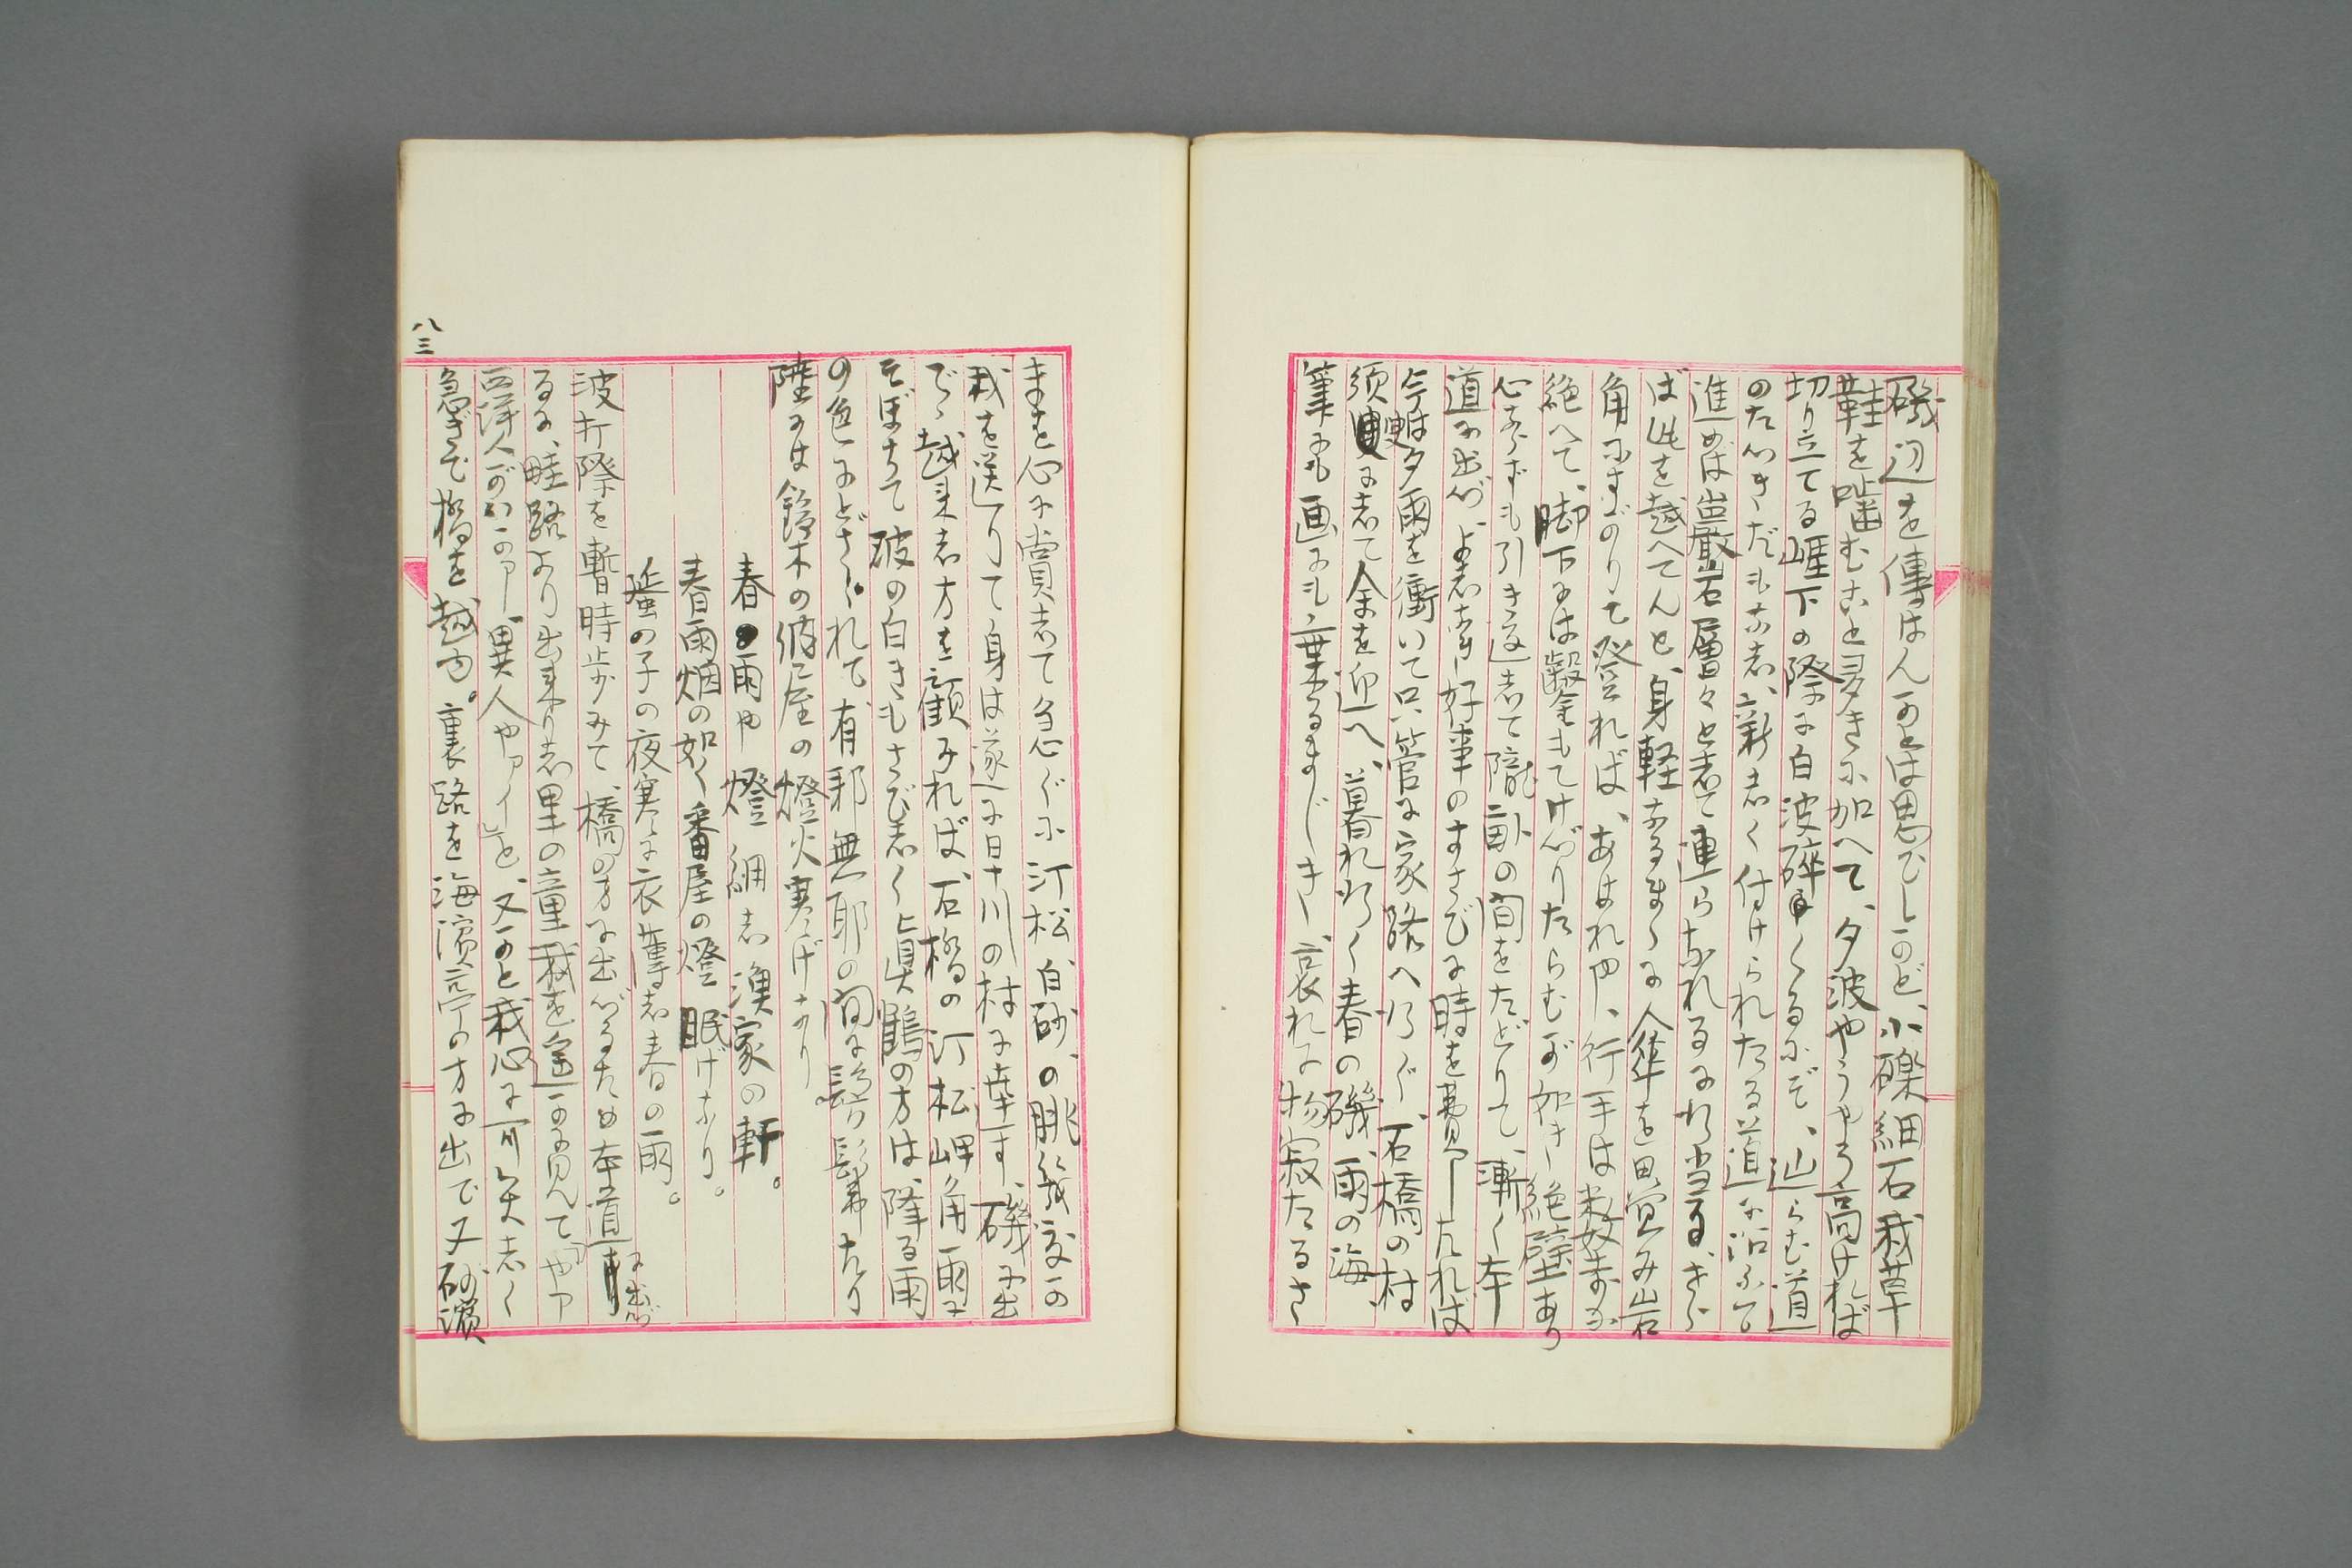 磯辺を傳はんかとは思ひしかど、小礫細石我草
鞋を噛むこと多きに加へて、夕波やうやう高ければ
切り立てる崖下の際に白波碎けくるにぞ、辿らむ道
のたゝきだも無し、新しく付けられたる道に沿ふて
進めば出巌岩層々として連らなれるに行当る、さら
ば此を越へてんと、身軽なるまゝに人傘を畳み岩
角にすがりて登れば、あはれや、行手は数尋が
絶へて、脚下には鑿もてけづりたらむが如き絶壁あり
心ならずも引き返して隴畝の間をたどりて、漸く本
道に出づ、よしなき好事のすさびに時を費したれば
今は夕雨を衝いて只管に家路へ行く、石橋の村
須臾にして余を迎へ、暮れ行く春の磯、雨の海、
筆にも画にも上るまじき、哀れに物寂たるさ
まを心に賞して急ぐに汀松、白砂、の眺幾度か
我を送りて身は遂に日十川の村に幸す、磯に出
でゝ越来し方を顧みれば、石橋の汀松岬角雨に
そぼちて破の白きもさびしく真鶴の方は、降る雨
の色にとざゝれて、有耶無耶の間に髣髴たり
陸には鈴木の彼屋の燈火寒げなり。
春雨や燈細し漁家の軒。
春雨烟の如く番屋の燈眠げなり。
蜑の子の夜寒に衣薄し春の雨。
波打際を暫時歩みて、橋の方に出づるため本道に出づ
るに、畦路より出来りし里の童我を遠かに見て「やア
西洋人がかア」「異人やアイ」と、又かと我心に可笑しく
急ぎて橋を越ゆ。裏路を海濱亭の方に出で又砂濱
八三